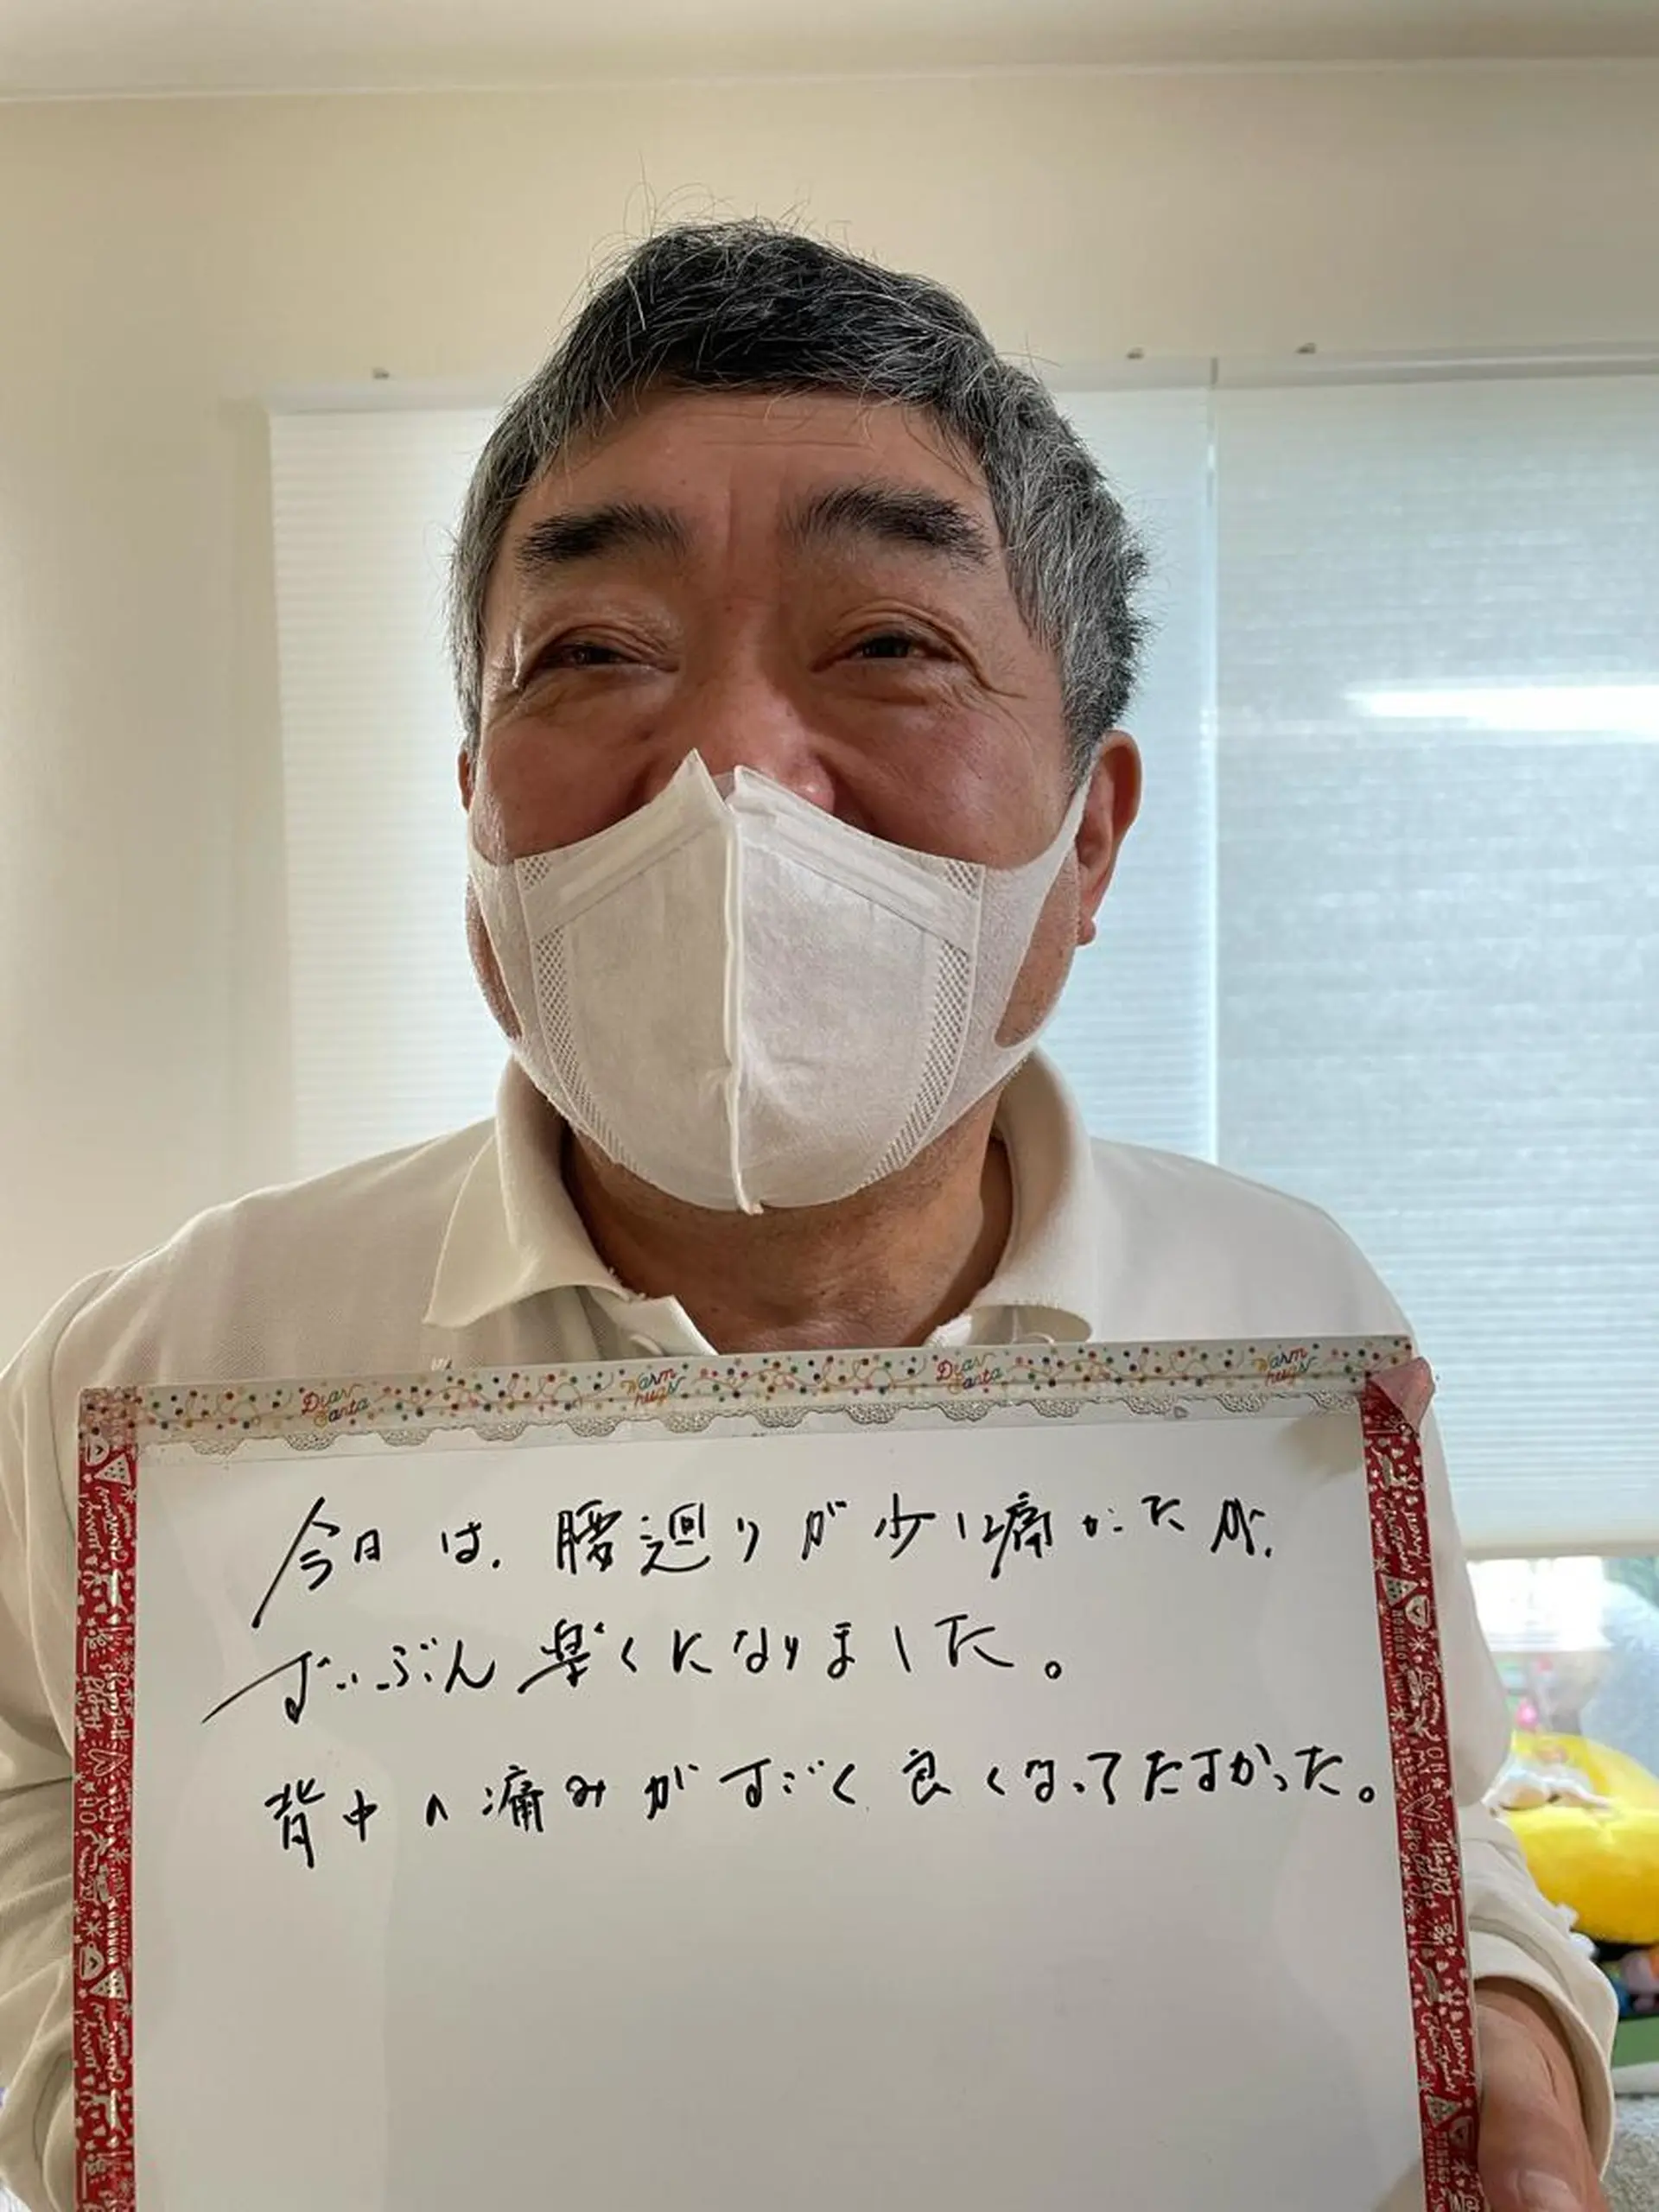 Dear Santa Warm hugs Dear Santa Warm hugs
今日は、腰廻りが少し痛かたが、
ずいぶん楽くになりました。
背中の痛みがすごく良くなってたすかった。